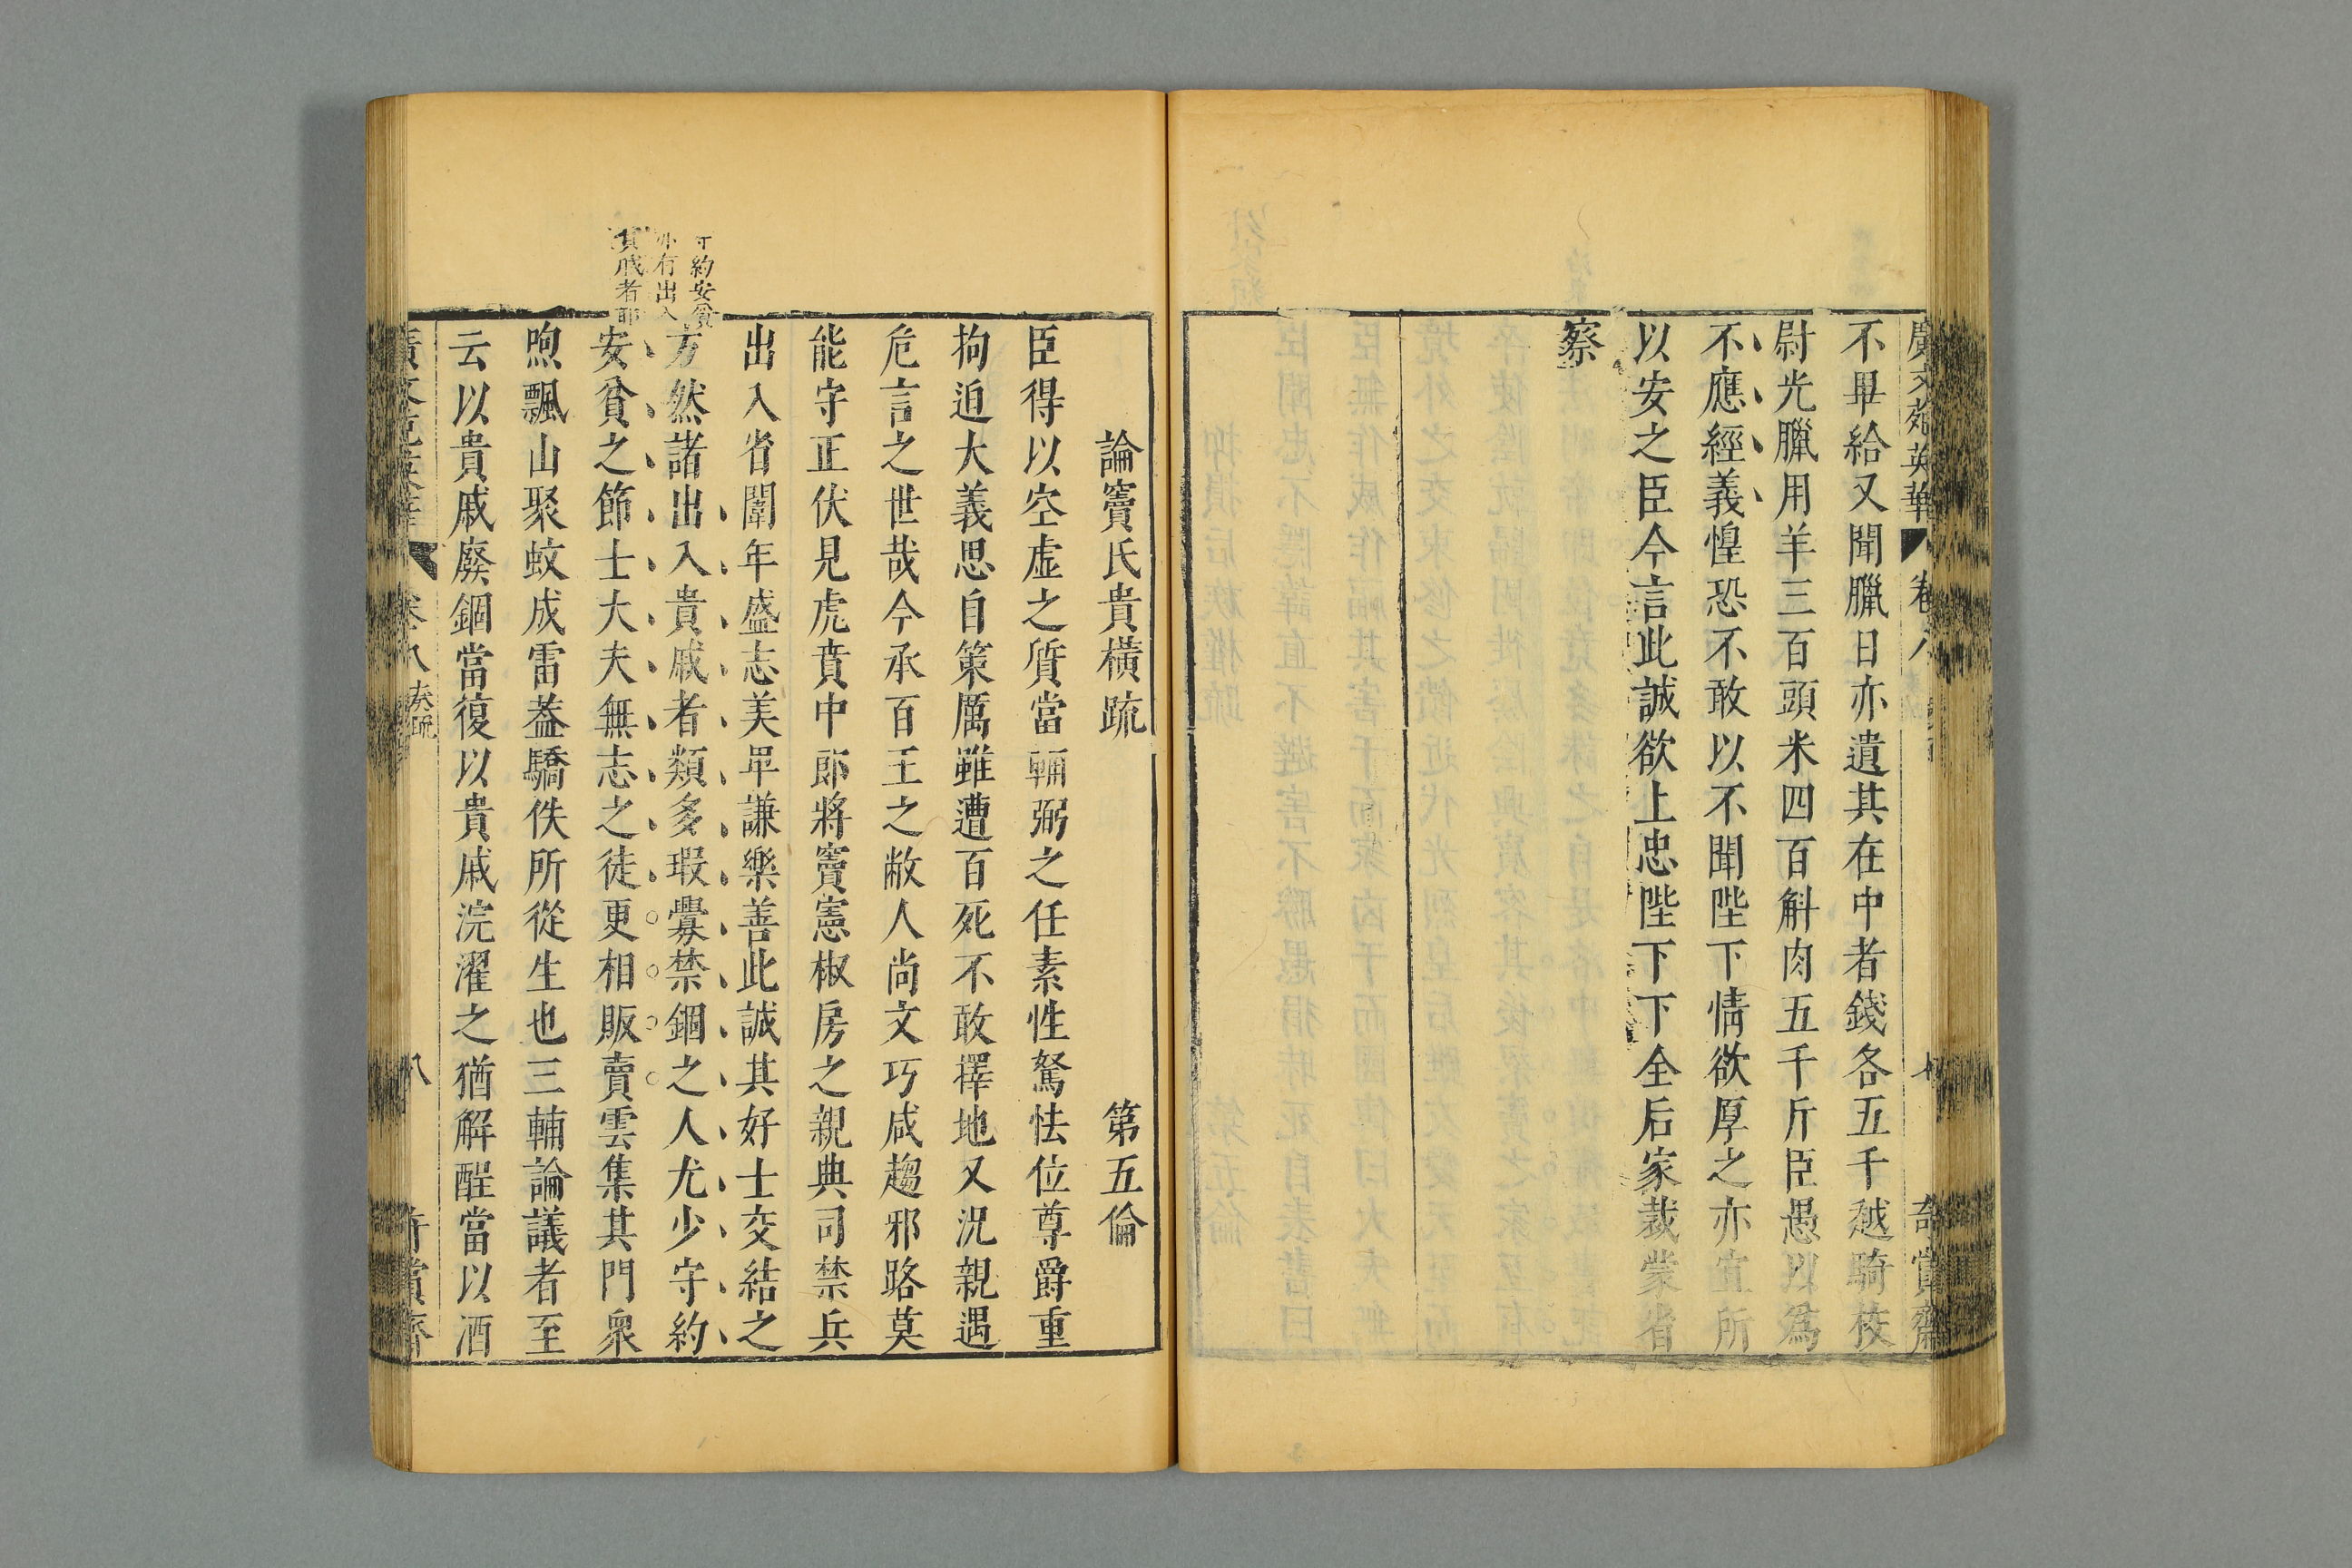 廣文苑英華 卷八 七 奇賞齋
不畢給又聞臘日亦遺其在中者錢各五千越騎校
尉光臘用羊三百頭米四百斛肉五千斤臣愚以為
不應經義惶恐不敢以不聞陛下情欲厚之亦宜所
以安之臣今言此誠欲上忠陛下下全后家裁蒙省
察
論竇氏貴橫疏 第五倫
臣得以空虛之質當輔弼之任素性駑怯位尊爵重
拘迫大義思自策厲雖遭百死不敢擇地又況親遇
危言之世哉今承百王之敝人尚文巧咸趨邪路莫
能守正伏見虎賁中郎將竇憲椒房之親典司禁兵
出入省闥年盛志美卑謙樂善此誠其好士交結之
方然諸出入貴戚者類多瑕釁禁錮之人尤少守約
安貧之節士大夫無志之徒更相販賣雲集其門衆
煦飄山聚蚊成雷葢驕佚所從生也三輔論議者至
云以貴戚廢錮當復以貴戚浣濯之猶解酲當以酒
守約安貧
有出入
貴戚者耶
廣文苑英華 卷八 奏疏 八 奇賞齋